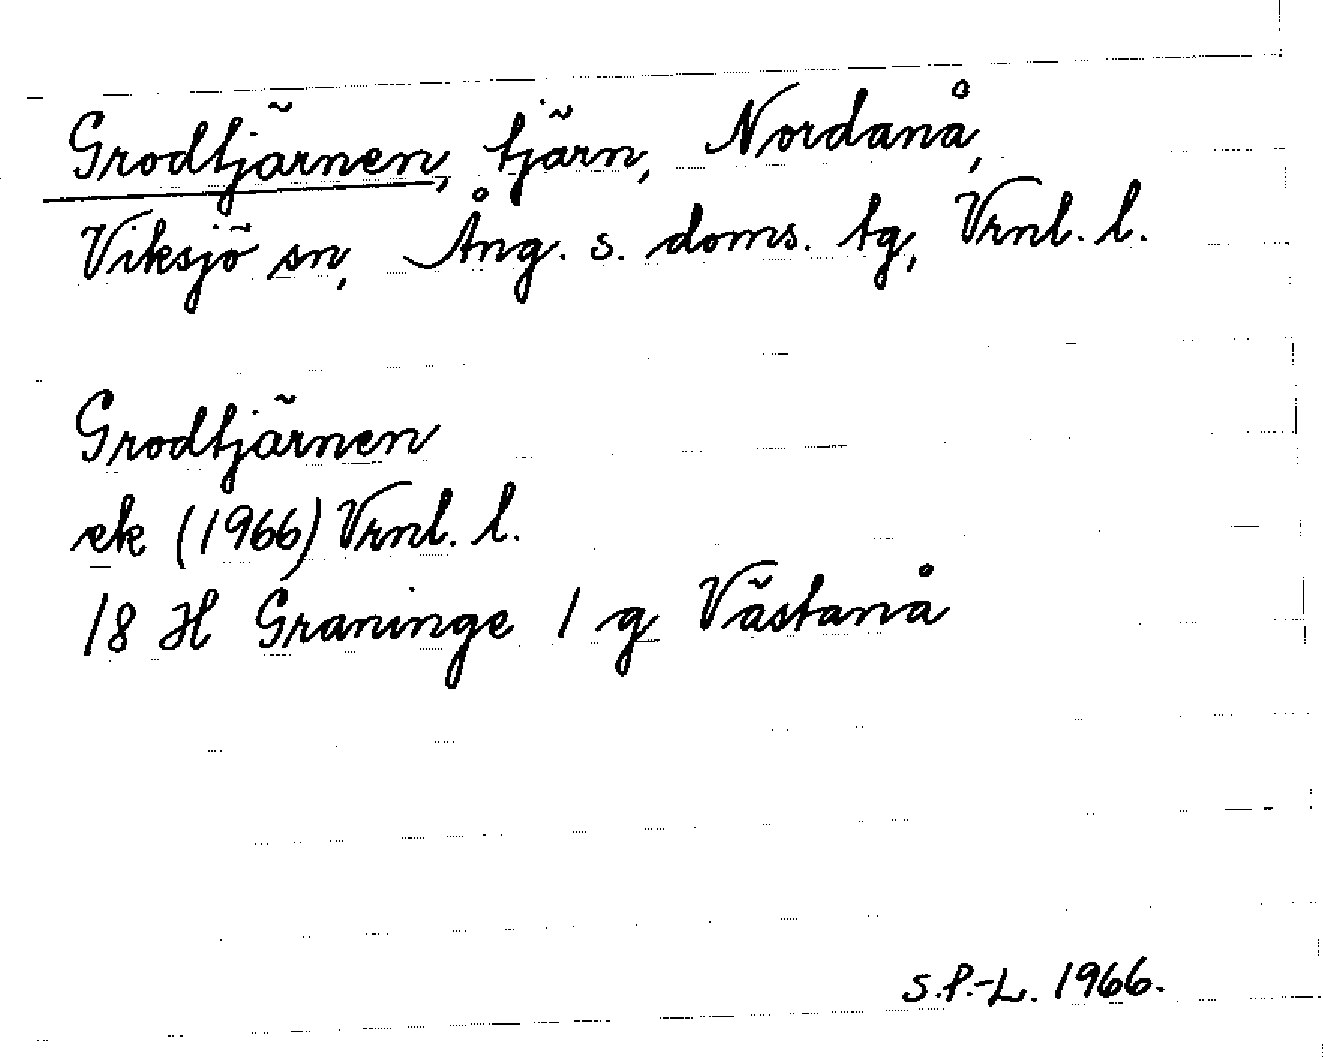 Grodtjärnen, tjärn, Nordanå,
Viksjö sn, Ång. s. doms. tg, Vrnl. l.
Grodtjärnen
ek (1966) Vrnl. l.
18 H Graninge 1 g Västanå
S.P.-L. 1966.